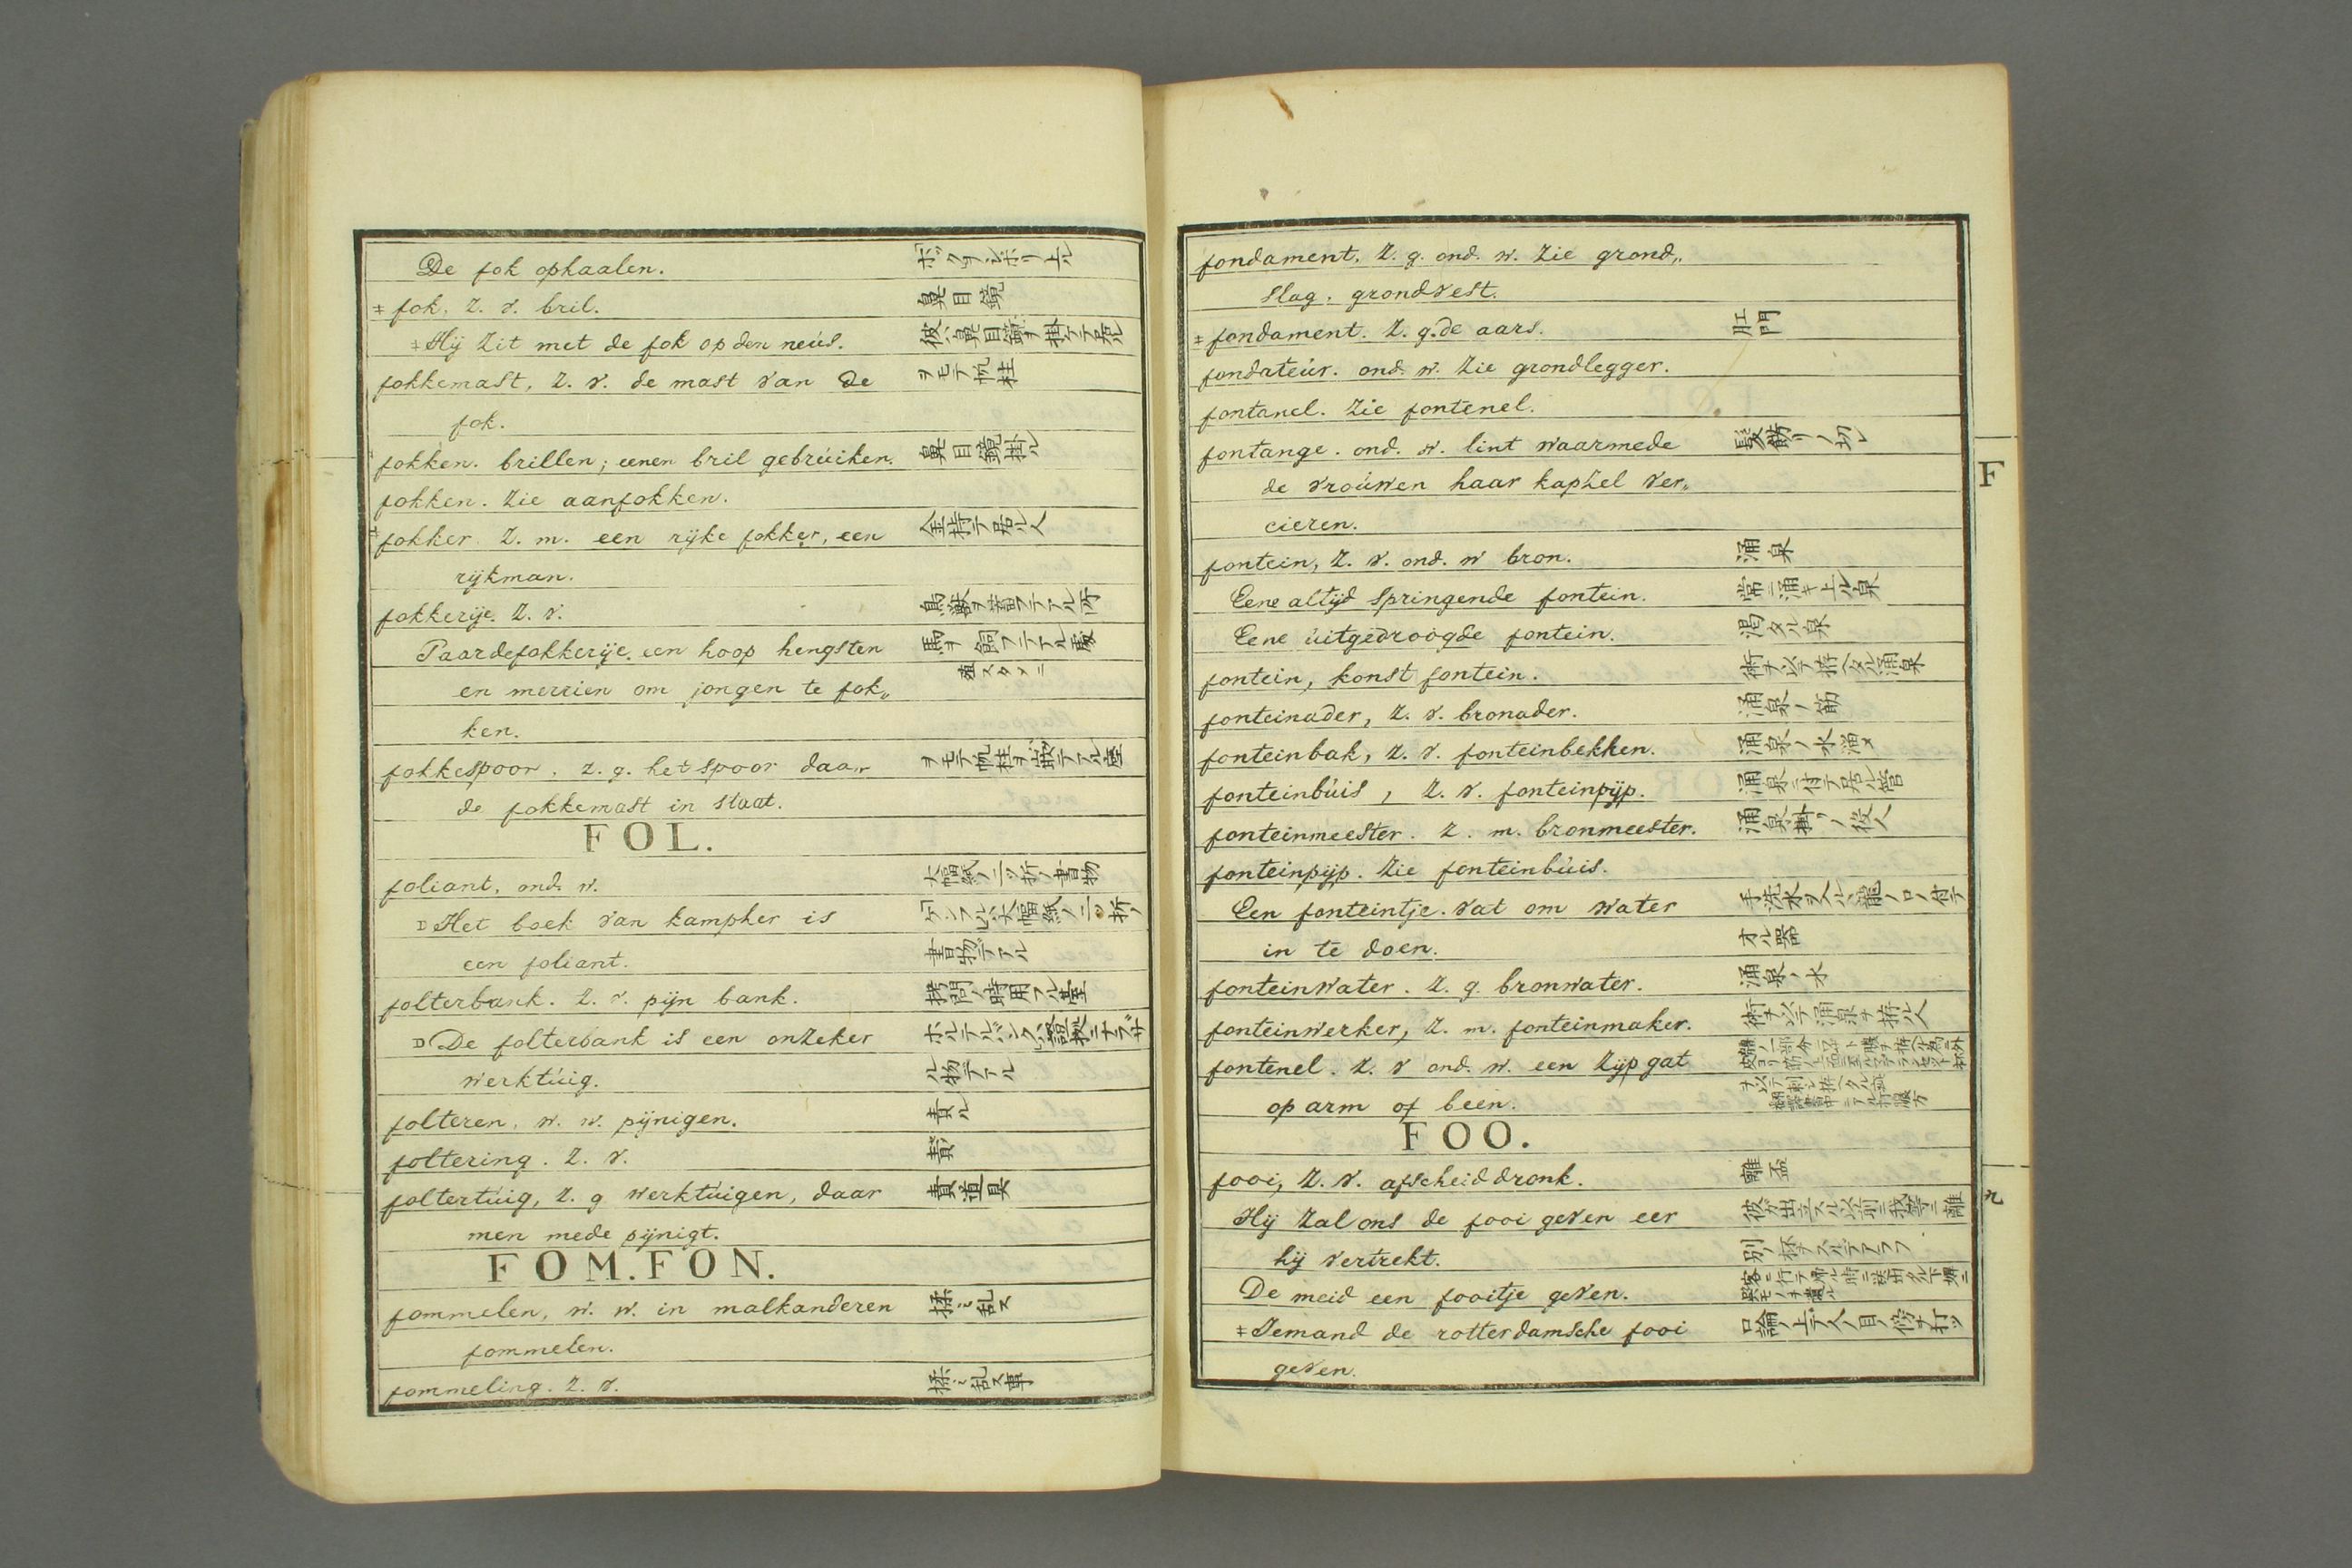 De fok ophaalen.
‡ fok. z. v. bril. 鼻目鏡
‡ Hij zit met de fok op den neús. 彼ハ鼻目鏡ヲ掛ケテ居ル
fokkemast, z. v. de mast van de ヲモテ帆柱
fok.
fokken. brillen; eenen bril gebrúiken. 鼻目鏡掛ル
fokken. zie aanfokken.
fokker. z. m. een rijke fokker, een 金持テ居ル人
rijkman.
fokkerije. z. v. 鳥獣ヲ蓄フテアル所
Paardefokkerije. een hoop hengsten 馬ヲ飼フテアル處
en merrien om jongen te fok„
ken.
fokkespoor. z. g. het spoor daar ヲモテ帆柱ヲ嵌テアル臺
de fokkemast in staat.
FOL.
foliant, ond. w. 大幅紙ノ二ツ折ノ書物
Het boek van kampher is
een foliant. 書物テアル
folterbank. z. v. pijn bank. 拷問ノ時用フル臺
De folterbank is een onzeker
werktúig. ル物テアル
folteren, w. w. pijnigen. 責ル
foltering. z. v. 責
foltertúig, z. g werktúigen, daar 責道具
men mede pijnigt.
FOM. FON.
fommelen, w. w. in malkanderen 揉ミ乱ス
fommelen.
fommeling. z. v. 揉ミ乱ス事
fondament, z. g. ond. w. zie grond„
slag. grondvest.
‡ fondament. z. g. de aars. 肛門
fondateúr. ond. w. zie grondlegger.
fontanel. zie fontenel.
fontange. ond. w. lint waarmede 髪飾リノ切レ
de vroúwen haar kapzel ver„
cieren.
fontein, z. v. ond. w bron. 涌泉
Eene altijd springende fontein. 常ニ涌キ上ル泉
Eene úitgedroogde fontein. 渇タル泉
fontein, konst fontein. 術ヲ以テ拵ヘタル涌泉
fonteinader, z. v. bronader. 涌泉ノ筋
fonteinbak, z. v. fonteinbekken. 涌泉ノ水溜メ
fonteinbúis, z. v. fonteinpijp. 涌泉ニ付テ居ル管
fonteinmeester. z. m. bronmeester. 涌泉掛リノ役人
fonteinpijp. zie fonteinbúis.
Een fonteintje. vat om water 手洗水ヲ入ル龍ノ口ノ付テ
in te doen. オル器
fonteinwater. z. g. bronwater. 涌泉ノ水
fonteinwerker, z. m. fonteinmaker. 術ヲ以テ涌泉ヲ拵ル人
fontenel. z. v ond. w. een zijpgat
op arm of been.
FOO.
fooi, z. v. afscheiddronk. 離盃
Hij zal ons de fooi geven eer 彼ガ出立スル以前ニ我等ニ離
hij vertrekt. 別ノ杯ヲスルデアラフ
De meid een fooitje geven.
‡ Iemand de rotterdamsche fooi 口論ノ上デ人ノ目ノ傍ヲ打ツ
geven.
F